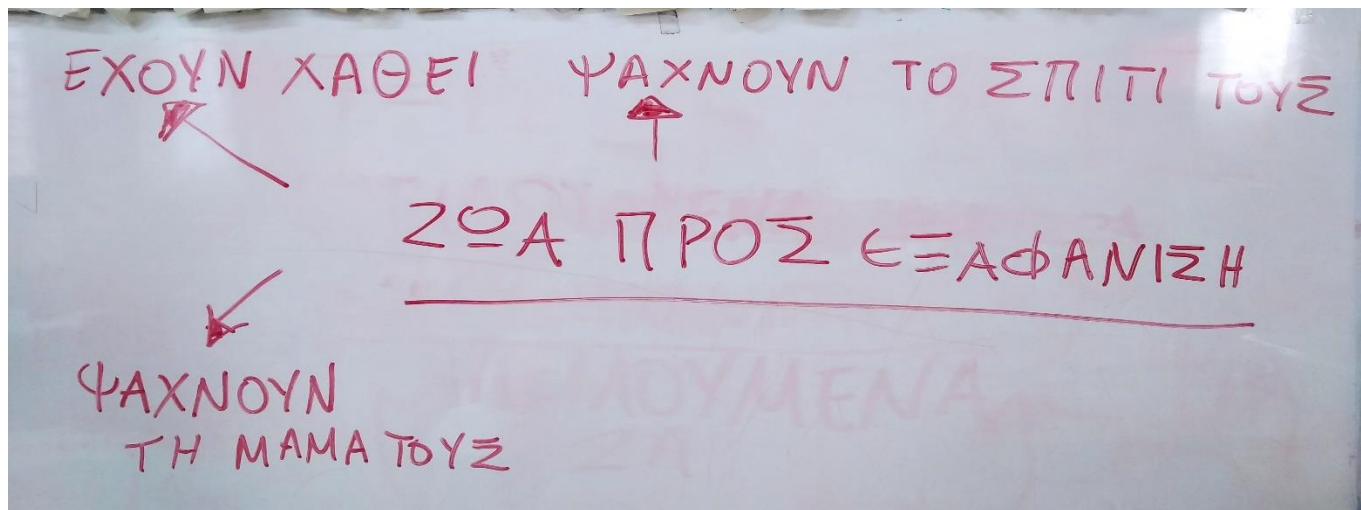 ΕΧΟΥΝ ΧΑΘΕΙ ΨΑΧΝΟΥΝ ΤΟ ΣΠΙΤΙ ΤΟΥΣ
ΖΩΑ ΠΡΟΣ ΕΞΑΦΑΝΙΣΗ
ΨΑΧΝΟΥΝ
ΤΗ ΜΑΜΑ ΤΟΥΣ